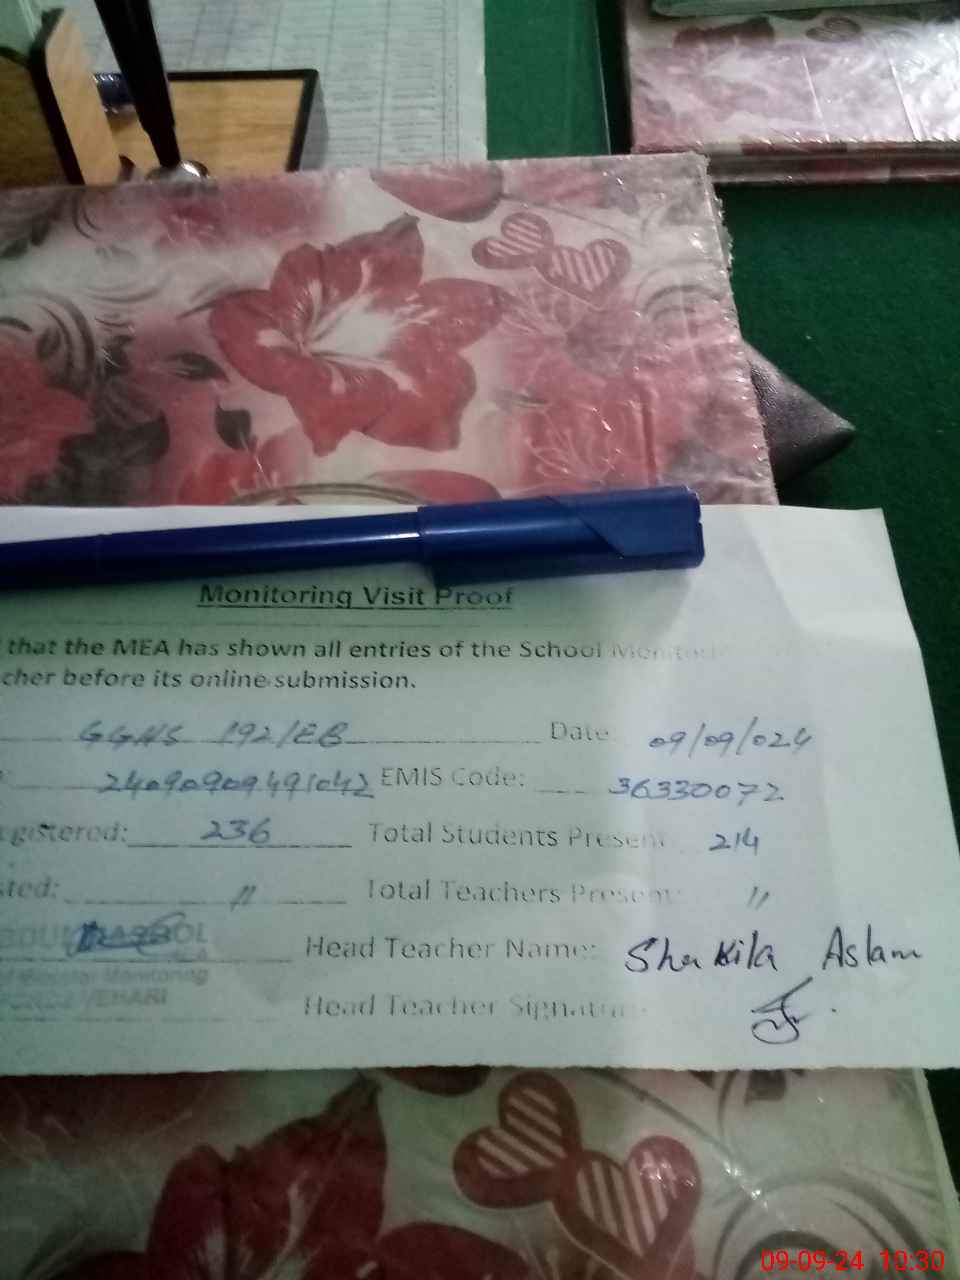 Monitoring Visit Proof
that the MEA has shown all entries of the School
cher before its online submission.
GGHS 192/EB Date 09/09/024
24090909491042 EMIS Code: 36330072
gistered: 236 Total Students Present 214
sted: 11 Total Teachers Present: 11
Head Teacher Name: Shakila Aslam
Monitoring
VEHARI Head Teacher Signature
09-09-24 10:30